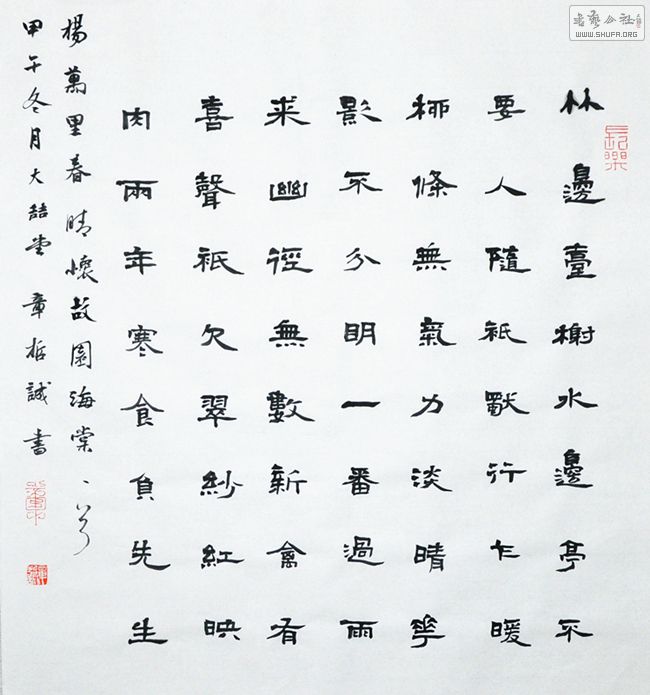 書藝公社
WWW.SHUFA.ORG
長樂
竹邊臺榭水邊亭不
要人隨衹獨行乍暖
柳條無氣力淡晴華
影不分明一番過雨
來幽徑無數新禽有
喜聲衹欠翠紗紅映
肉兩年寒食負先生
楊萬里春晴懷故園海棠一首
甲午冬月大喆堂章哲誠書